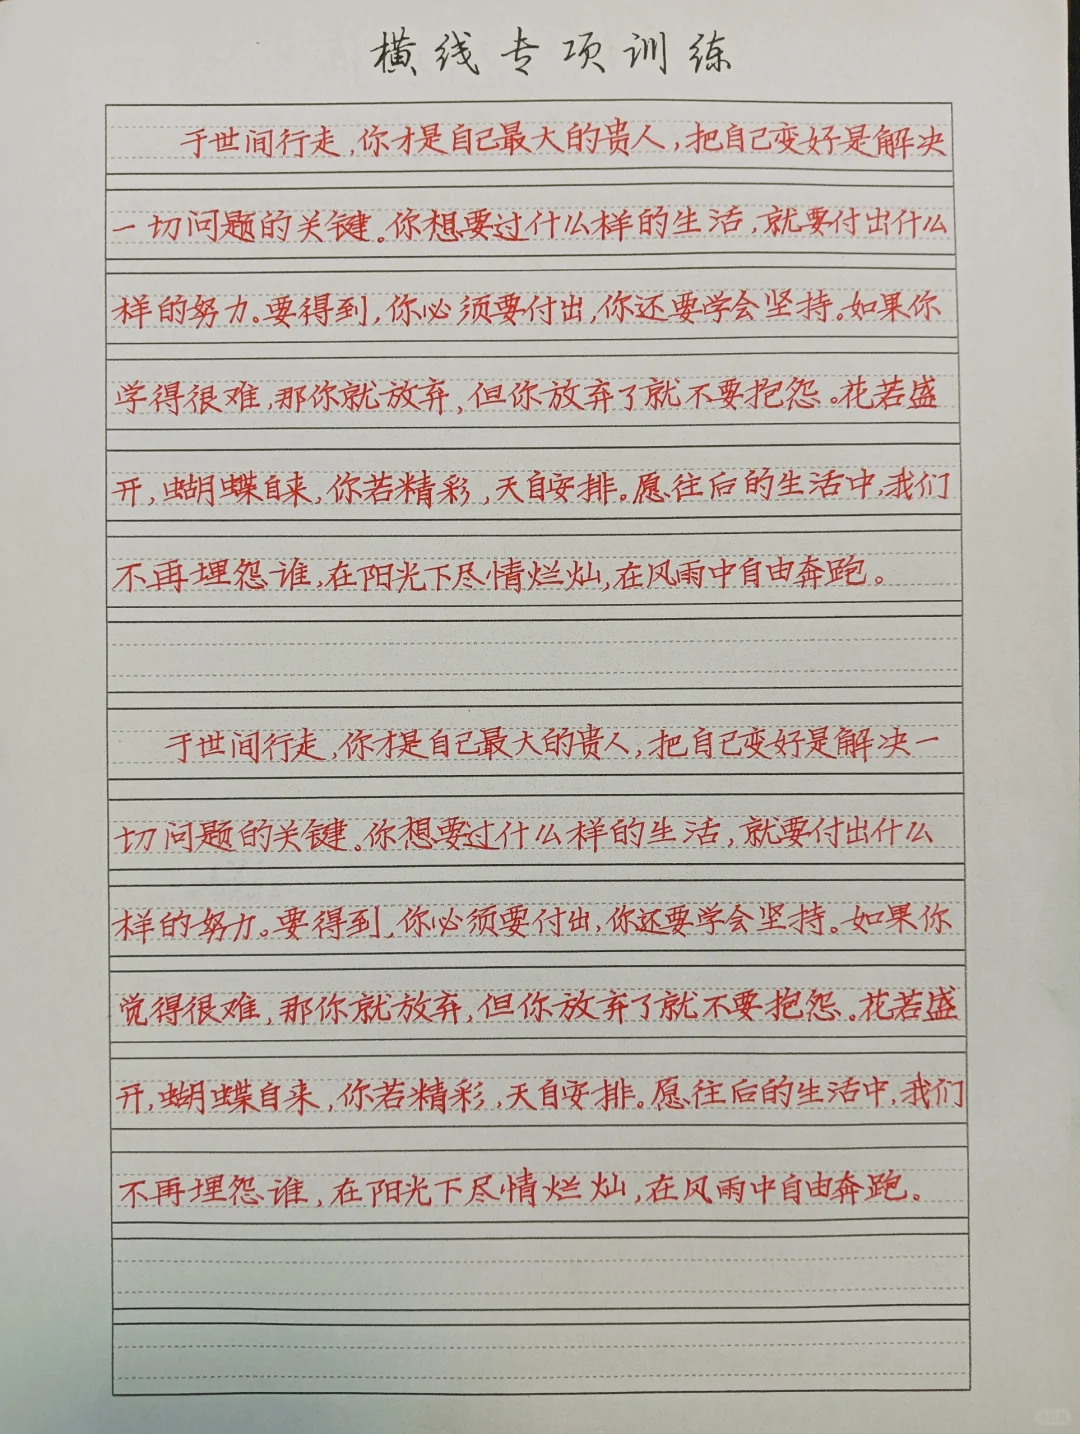 横线专项训练
于世间行走,你才是自己最大的贵人,把自己变好是解决
一切问题的关键。你想要过什么样的生活,就要付出什么
样的努力。要得到,你必须要付出,你还要学会坚持。如果你
学得很难,那你就放弃,但你放弃了就不要抱怨。花若盛
开,蝴蝶自来,你若精彩,天自安排。愿往后的生活中,我们
不再埋怨谁,在阳光下尽情烂灿,在风雨中自由奔跑。
于世间行走,你才是自己最大的贵人,把自己变好是解决一
切问题的关键。你想要过什么样的生活,就要付出什么
样的努力。要得到,你必须要付出,你还要学会坚持。如果你
觉得很难,那你就放弃,但你放弃了就不要抱怨。花若盛
开,蝴蝶自来,你若精彩,天自安排。愿往后的生活中,我们
不再埋怨谁,在阳光下尽情烂灿,在风雨中自由奔跑。